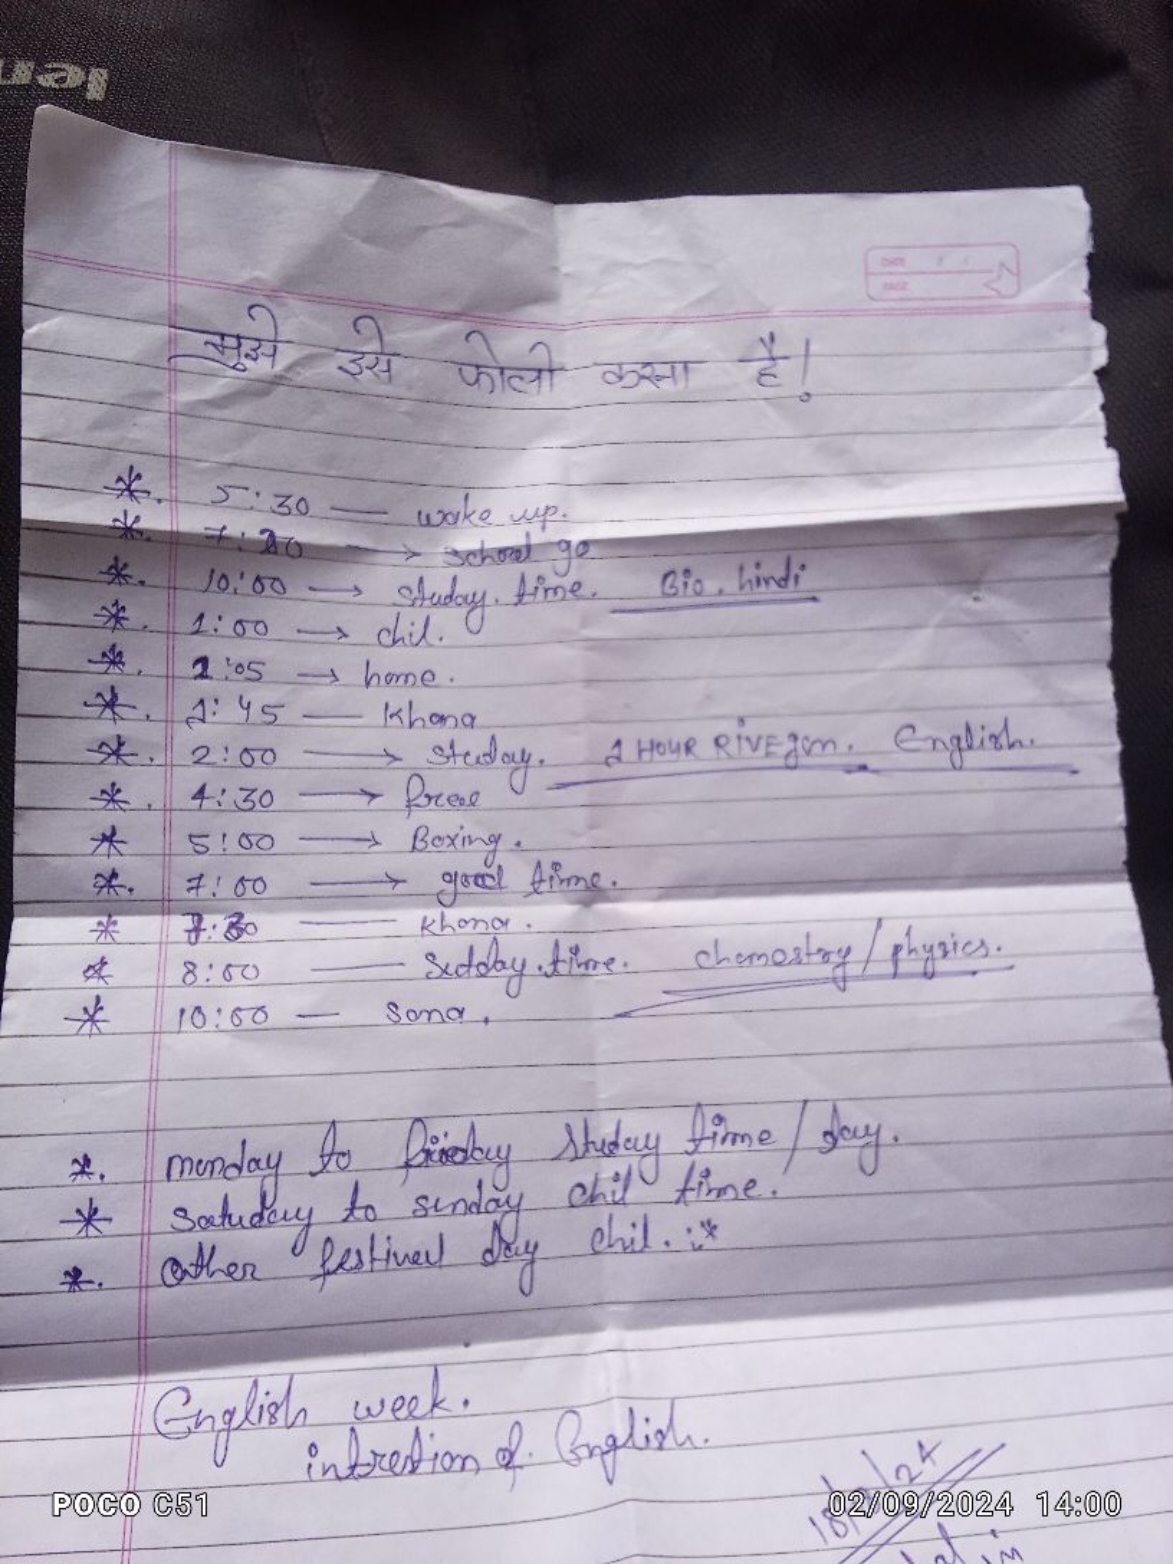 len
DATE
PAGE
मुझे इसे फोलो करना है!
*. 5:30 — wake up.
*. 7:20 → school go
*. 10:00 → studay. time. Bio. hindi
*. 1:00 → chil.
*. 1:05 → home.
*. 1:45 — Khana
*. 2:00 → studay. 1 HOUR RIVEJan. English.
*. 4:30 → free
* 5:00 → Boxing.
*. 7:00 → good time.
* 7:30 — khana.
* 8:00 — Sudday.time. chemestry/physics.
* 10:00 — Sona.
*. monday to friday studay time/day.
* satuday to sunday chil time.
*. other festival day chil. :*
English week.
intrestion of. English.
POCO C51
02/09/2024 14:00